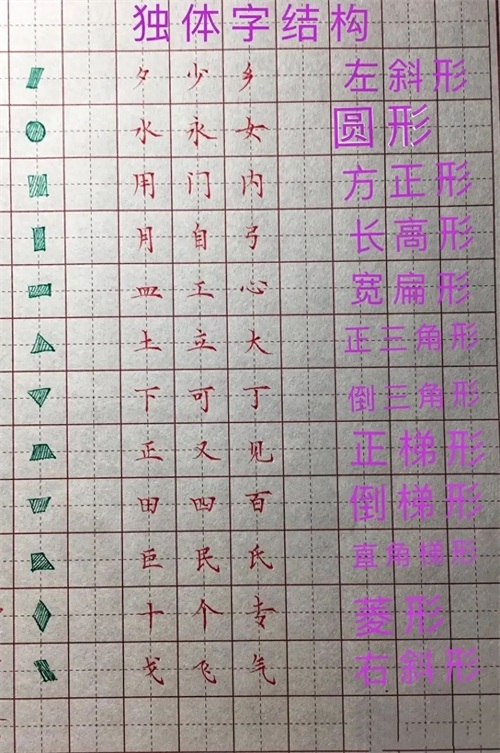 独体字结构
夕 少 乡 左斜形
水 永 女 圆形
用 门 内 方正形
月 自 弓 长高形
皿 工 心 宽扁形
土 立 大 正三角形
下 可 丁 倒三角形
正 又 见 正梯形
田 四 百 倒梯形
巨 民 氏 直角梯形
十 个 专 菱形
戈 飞 气 右斜形